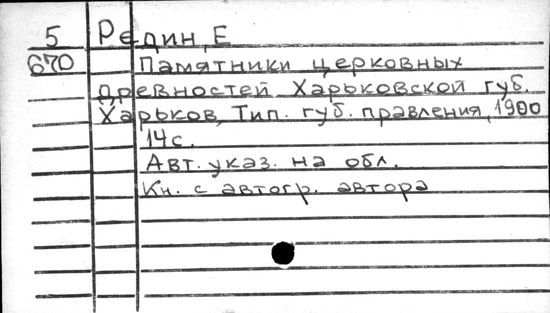 5 Редин, Е
670 Памятники церковных
древностей Харьковской губ.
Харьков, Тип. губ. правления, 1900
14с.
Авт. указ. на обл.
Кн. с автогр. автора